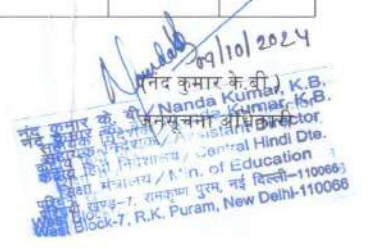 09/10/2024
(नंद कुमार के.बी.)
जनसूचना अधिकारी
नंद कुमार के. बी. / Nanda Kumar, K.B.
Assistant Director
केंद्रीय हिंदी निदेशालय / Central Hindi Dte.
शिक्षा मंत्रालय / Min. of Education
पश्चिमी खण्ड-7, रामकृष्ण पुरम, नई दिल्ली-110066
West Block-7, R.K. Puram, New Delhi-110066